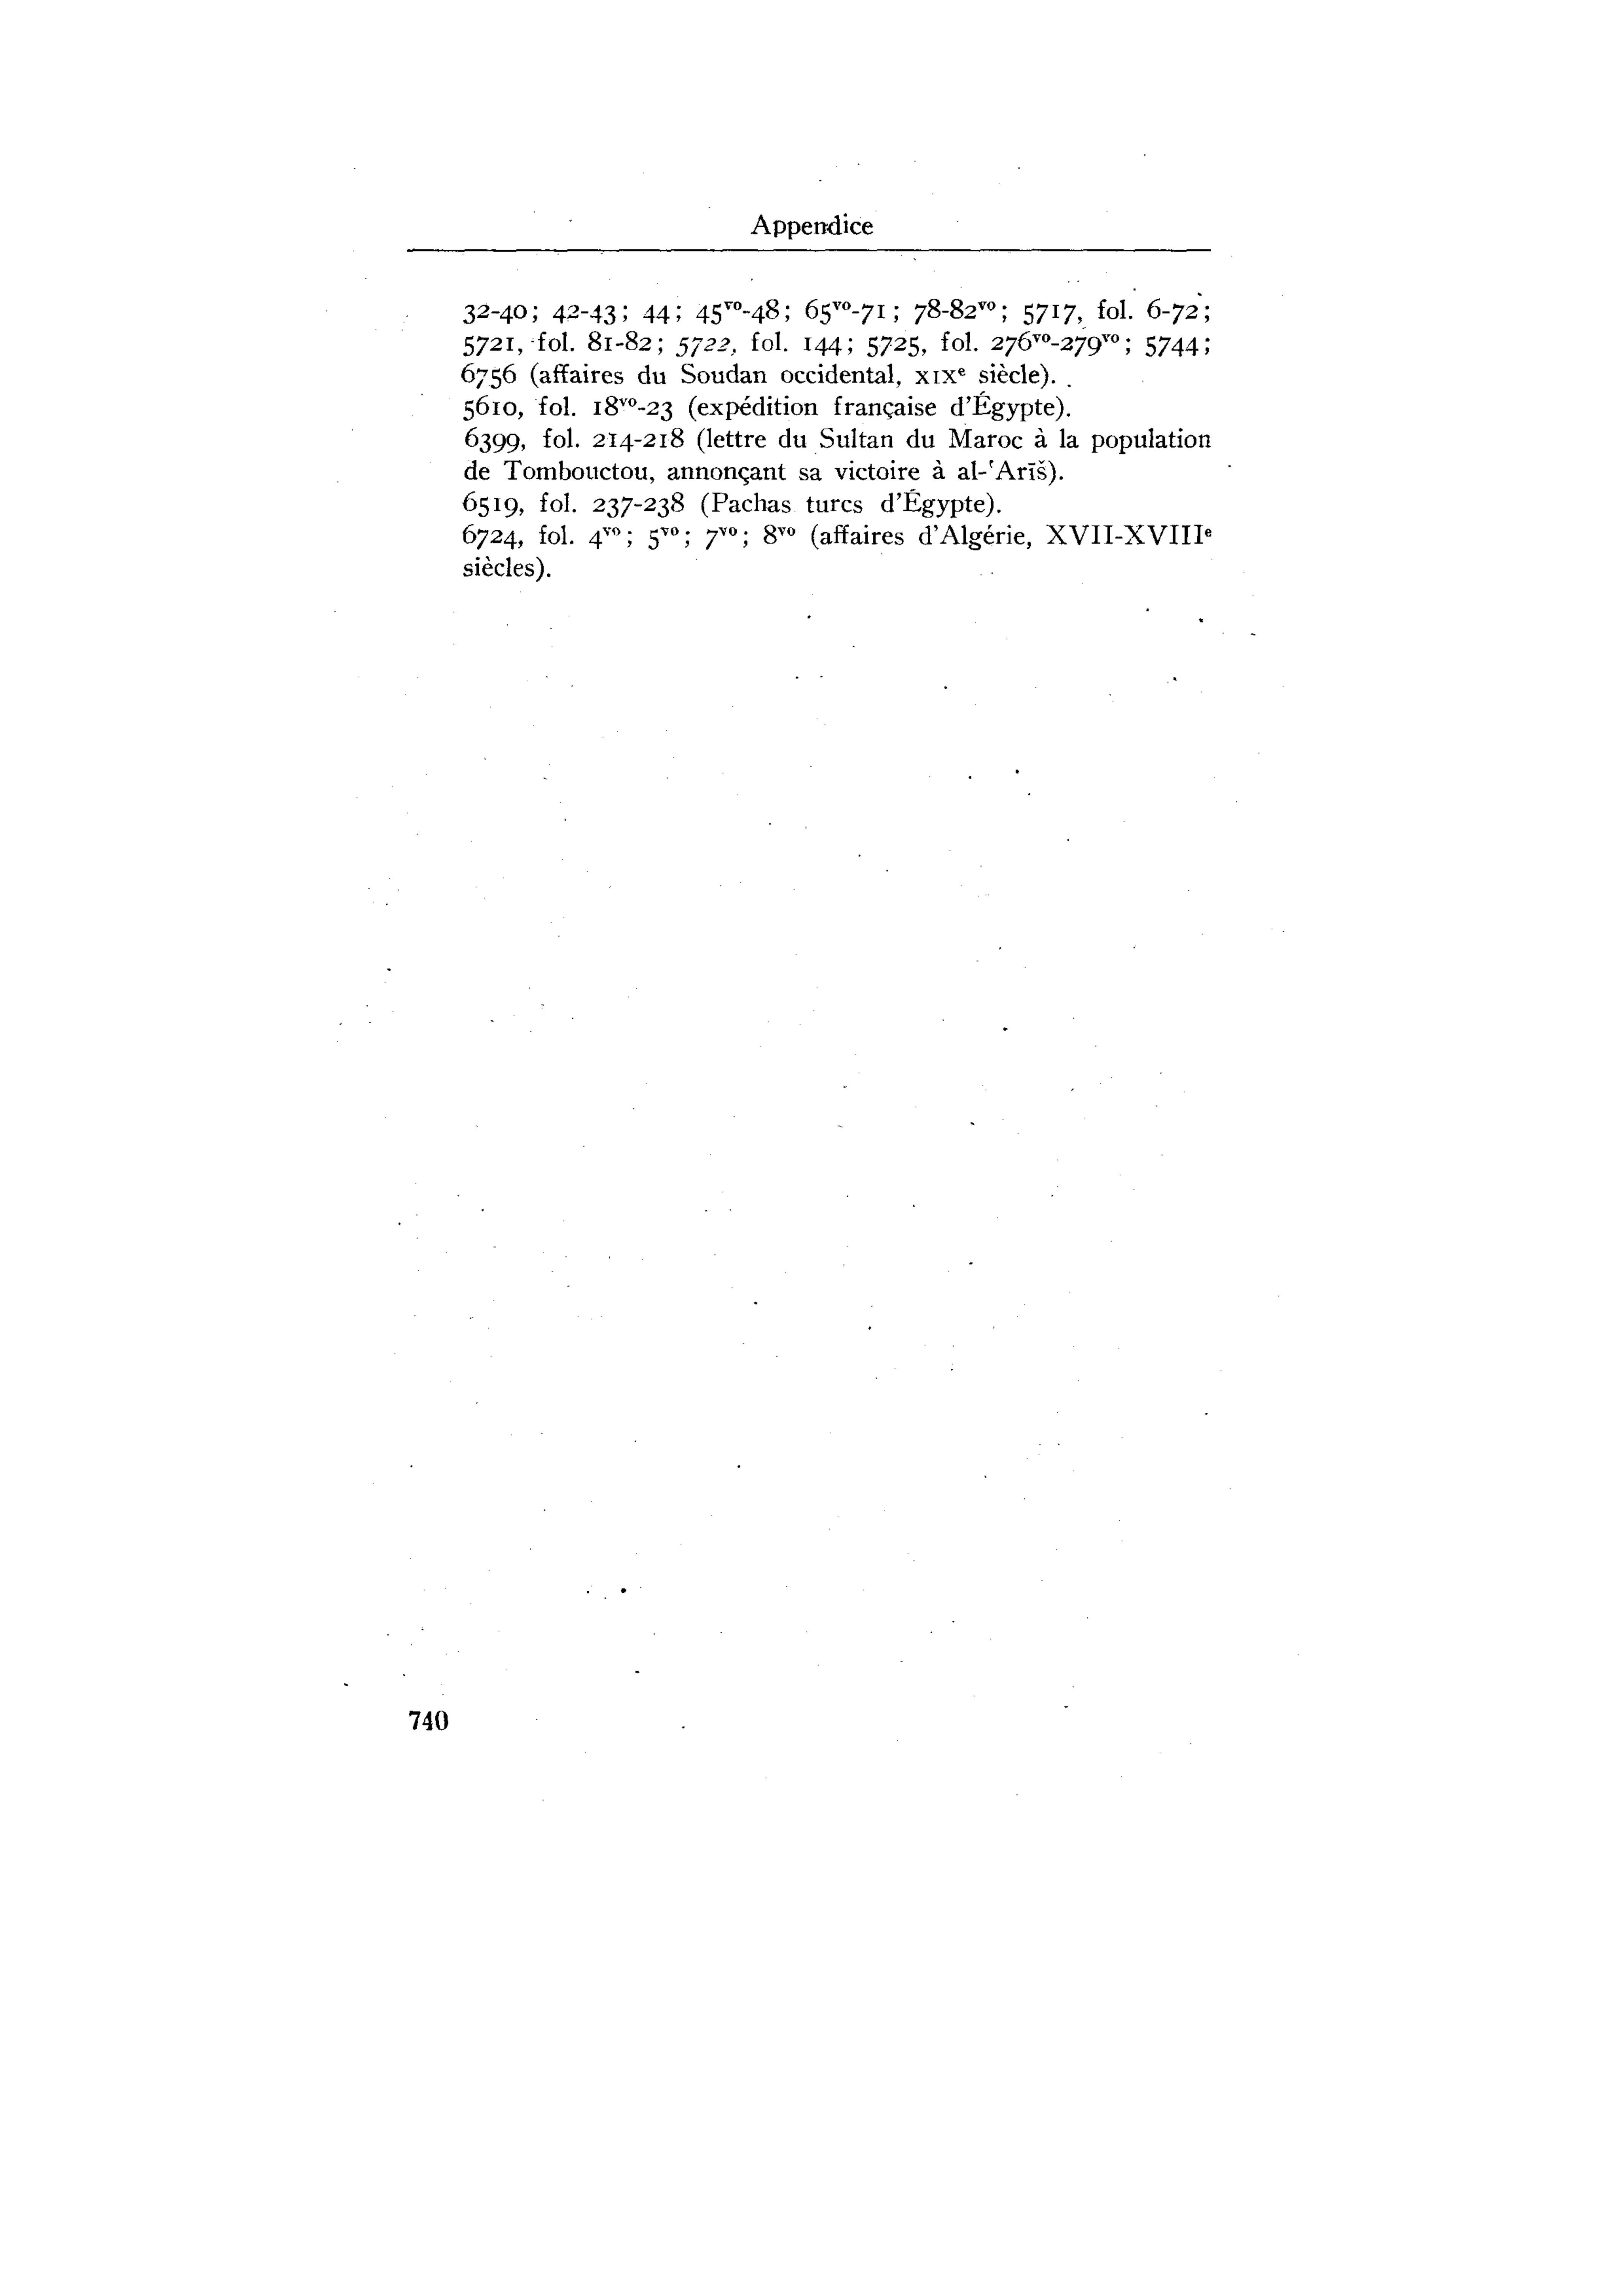 Appendice
32-40; 42-43; 44; 45vo-48; 65vo-71; 78-82vo; 5717, fol. 6-72;
5721, fol. 81-82; 5722, fol. 144; 5725, fol. 276vo-279vo; 5744;
6756 (affaires du Soudan occidental, XIXe siècle).
5610, fol. 18vo-23 (expédition française d'Égypte).
6399, fol. 214-218 (lettre du Sultan du Maroc à la population
de Tombouctou, annonçant sa victoire à al-ʿArīš).
6519, fol. 237-238 (Pachas turcs d'Égypte).
6724, fol. 4vo; 5vo; 7vo; 8vo (affaires d'Algérie, XVII-XVIIIe
siècles).
740